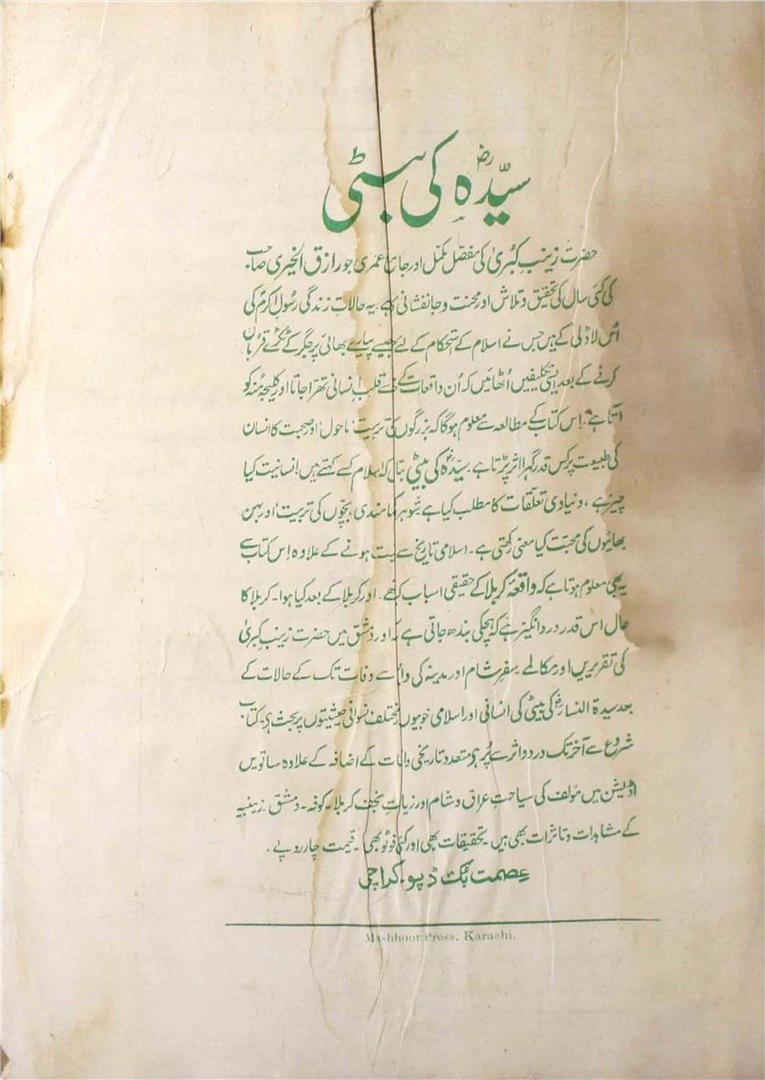 سیّدہؓ کی بیٹی
حضرت زینب کبریٰ کی مفصل مکمل اور جامع عمری جو رازق الخیری صاحب
کی کئی سال کی تحقیق و تلاش اور محنت و جانفشانی ہے۔ یہ حالات زندگی رسول اکرمؐ کی
اُس لاڈلی کے ہیں جس نے اسلام کے استحکام کے لئے جیسے پیارے بھائی پر جگر کے ٹکڑے قربان
کرنے کے بعد ایسی تکلیفیں اُٹھائیں کہ اُن واقعات کے قلب انسانی تھرا جاتا اور کلیجہ منہ کو
آتا ہے۔ اِس کتاب کے مطالعہ سے معلوم ہوگا کہ بزرگوں کی تربیت ماحول اور صحبت کا انسان
کی طبیعت پر کس قدر گہرا اثر پڑتا ہے۔ سیّدہؓ کی بیٹی بتائے گی کہ اسلام کسے کہتے ہیں انسانیت کیا
چیز ہے، دنیاوی تعلّقات کا مطلب کیا ہے شوہر کی رضامندی بچّوں کی تربیت اور بہن
بھائیوں کی محبّت کیا معنی رکھتی ہے۔ اسلامی تاریخ سے ہونے کے علاوہ اِس کتاب سے
یہ بھی معلوم ہوتا ہے کہ واقعۂ کربلا کے حقیقی اسباب کیا تھے۔ اور کربلا کے بعد کیا ہوا۔ کربلا کا
حال اس قدر درد انگیز ہے کہ ہچکی بندھ جاتی ہے اور دمشق میں حضرت زینب کبریٰ
کی تقریریں اور مکالمے سفر شام اور مدینہ کی واپسی سے وفات تک کے حالات کے
بعد سیدۃ النساءؓ کی بیٹی کی انسانی اور اسلامی خوبیوں مختلف نسوانی حیثیتوں پر بحث ہے۔ کتاب
شروع سے آخر تک درد و اثر سے پُر ہے متعدد تاریخی واقعات کے اضافہ کے علاوہ ساتویں
اڈیشن میں مؤلف کی سیاحتِ عراق و شام اور زیاراتِ نجف کربلا۔ کوفہ۔ دمشق۔ زینبیہ
کے مشاہدات و تاثرات بھی ہیں۔ تحقیقات بھی اور کئی فوٹو بھی۔ قیمت چار روپے۔
عصمت بک ڈپو۔ کراچی
Mashhoor Press, Karachi.